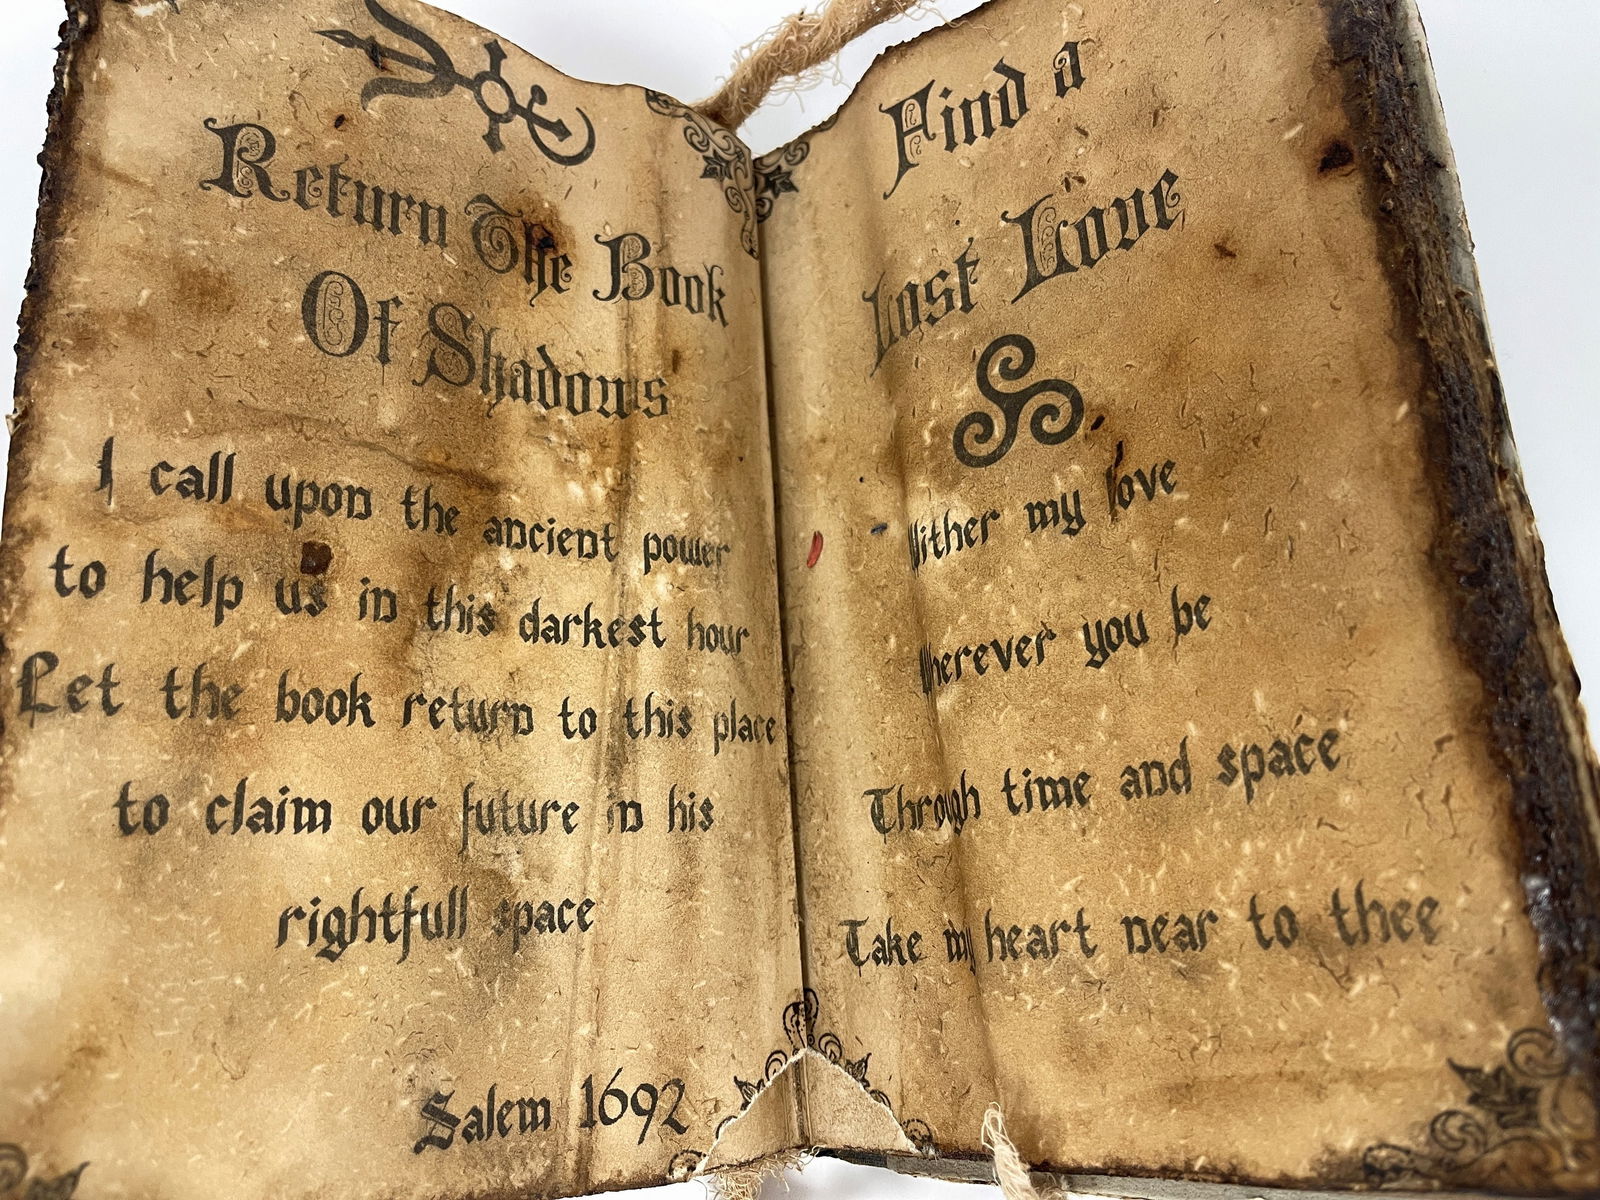 Return The Book
Of Shadows
I call upon the ancient power
to help us in this darkest hour
Let the book return to this place
to claim our future in his
rightfull space
Salem 1692
Find a
Lost Love
Wither my love
Wherever you be
Through time and space
Take my heart near to thee